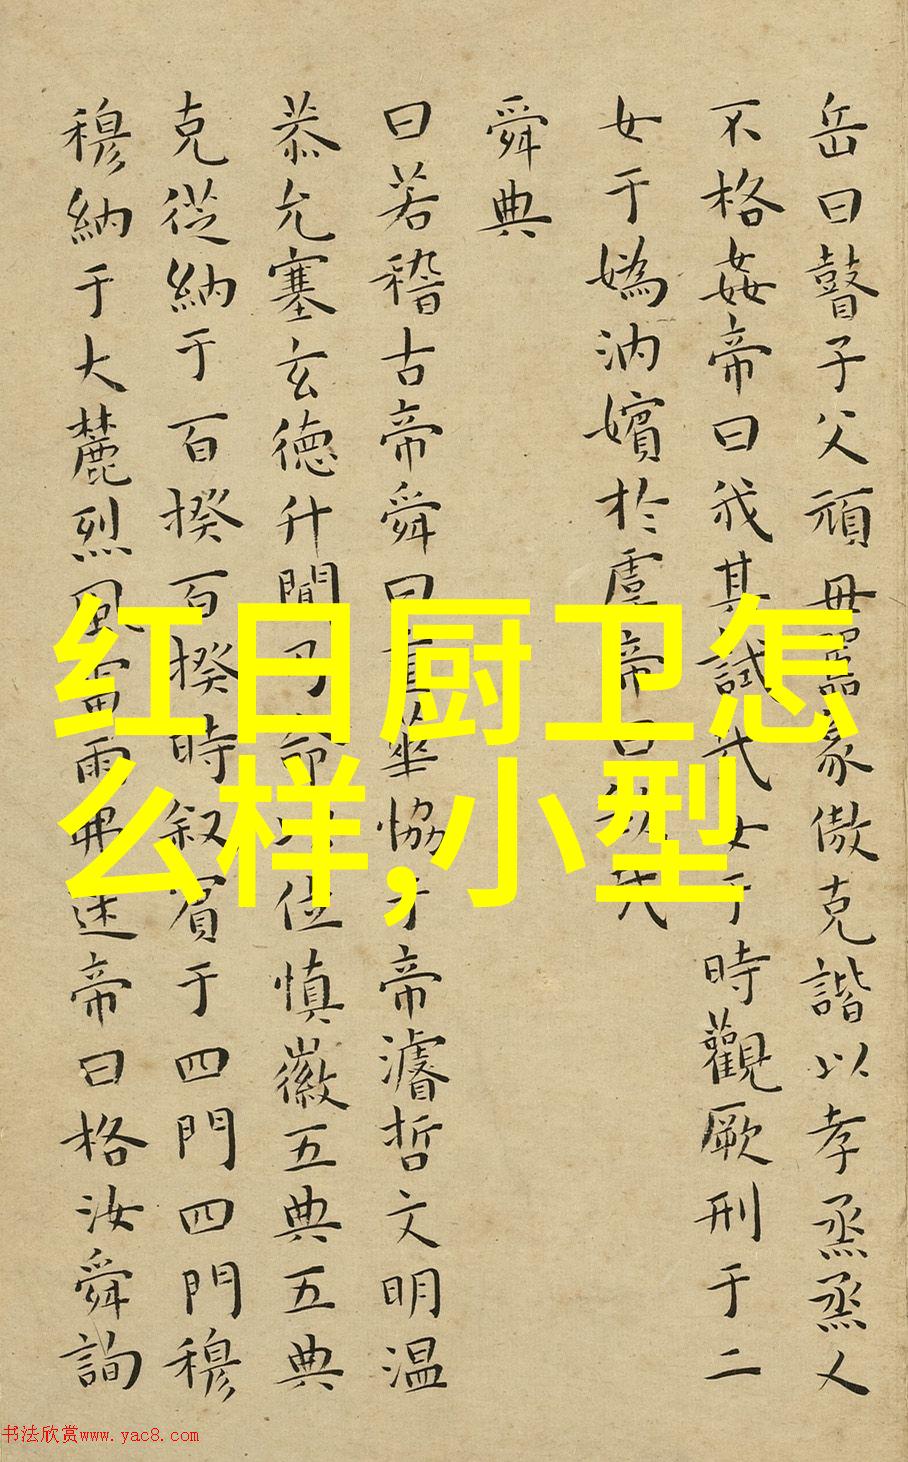 岳曰瞽子父頑毋嚚象傲克諧以孝烝烝乂
不格姦帝曰我其試哉女于時觀厥刑于二
女于媯汭嬪於虞帝曰欽哉
舜典
曰若稽古帝舜曰重華協于帝濬哲文明温
恭允塞玄德升聞乃命以位慎徽五典五典
克從納于百揆百揆時叙賓于四門四門穆
穆納于大麓烈風雷雨弗迷帝曰格汝舜詢
红日厨卫怎
么样,小型
书法欣赏www.yac8.com